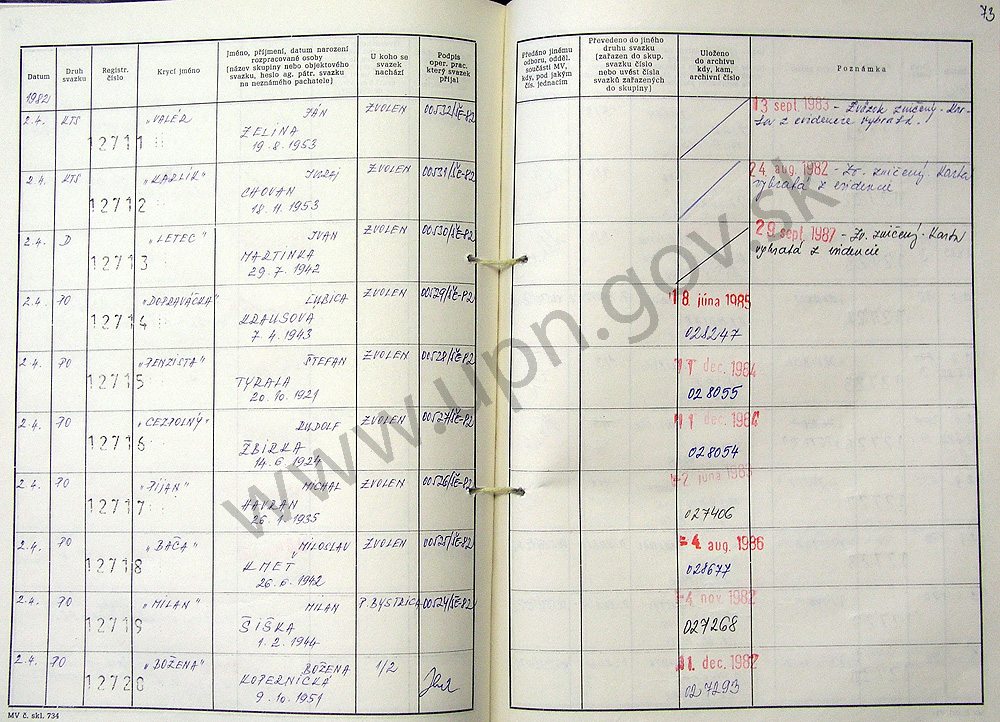 73
Datum
Druh svazku
Registr. číslo
Krycí jméno
Jméno, příjmení, datum narození
rozpracované osoby
(název skupiny nebo objektového
svazku, heslo ag. pátr. svazku
na neznámého pachatele)
U koho se
svazek
nachází
Podpis
oper. prac.
který svazek
přijal
Předáno jinému
odboru, odděl.
součásti MV,
kdy, pod jakým
čís. jednacím
Převedeno do jiného
druhu svazku
(zařazen do skup.
svazku číslo
nebo uvést čísla
svazků zařazených
do skupiny)
Uloženo
do archivu
kdy, kam,
archivní číslo
Poznámka
1982
2.4. KTS 12711 „VALÉR" JÁN ZVOLEN 00532/ŠE-82
ZELINA
19.8.1953
13 sept. 1983 - Zväzok zničený. Kar-
tov z evidencie vybratá.
2.4. KTS 12712 „KARLÍK" JOZEF ZVOLEN 00531/ŠE-82
CHOVAN
18.11.1953
24. aug. 1982 - Zv. zničený. Karta
vybratá z evidencie
2.4. D 12713 „LETEC" IVAN ZVOLEN 00530/ŠE-82
MARTINKA
29.7.1942
29 sept. 1987 - Zv. zničený. Karta
vybratá z evidencie
2.4. PO 12714 „DOPRAVÁČKA" ĽUBICA ZVOLEN 00529/ŠE-82
KRAUSOVA
7.4.1943
18. júna 1985
028247
2.4. PO 12715 „PENZISTA" ŠTEFAN ZVOLEN 00528/ŠE-82
TYRALA
20.10.1921
11 dec. 1984
028055
2.4. PO 12716 „CEZPOLNÝ" RUDOLF ZVOLEN 00527/ŠE-82
ŽBIRKA
14.6.1924
11 dec. 1984
028054
2.4. PO 12717 „PIJAN" MICHAL ZVOLEN 00526/ŠE-82
HAVRAN
26.1.1935
-2 júna
027406
2.4. PO 12718 „BAČA" MILOSLAV ZVOLEN 00525/ŠE-82
KMEŤ
26.6.1942
-4. aug. 1986
028677
2.4. PO 12719 „MILAN" MILAN P. BYSTRICA 00524/ŠE-82
ŠIŠKA
1.2.1944
-4 nov. 1982
027268
2.4. PO 12720 „BOŽENA" BOŽENA 1/2
KOPERNICKÁ
9.10.1951
dec. 1982
027293
MV č. skl. 734
www.upn.gov.sk